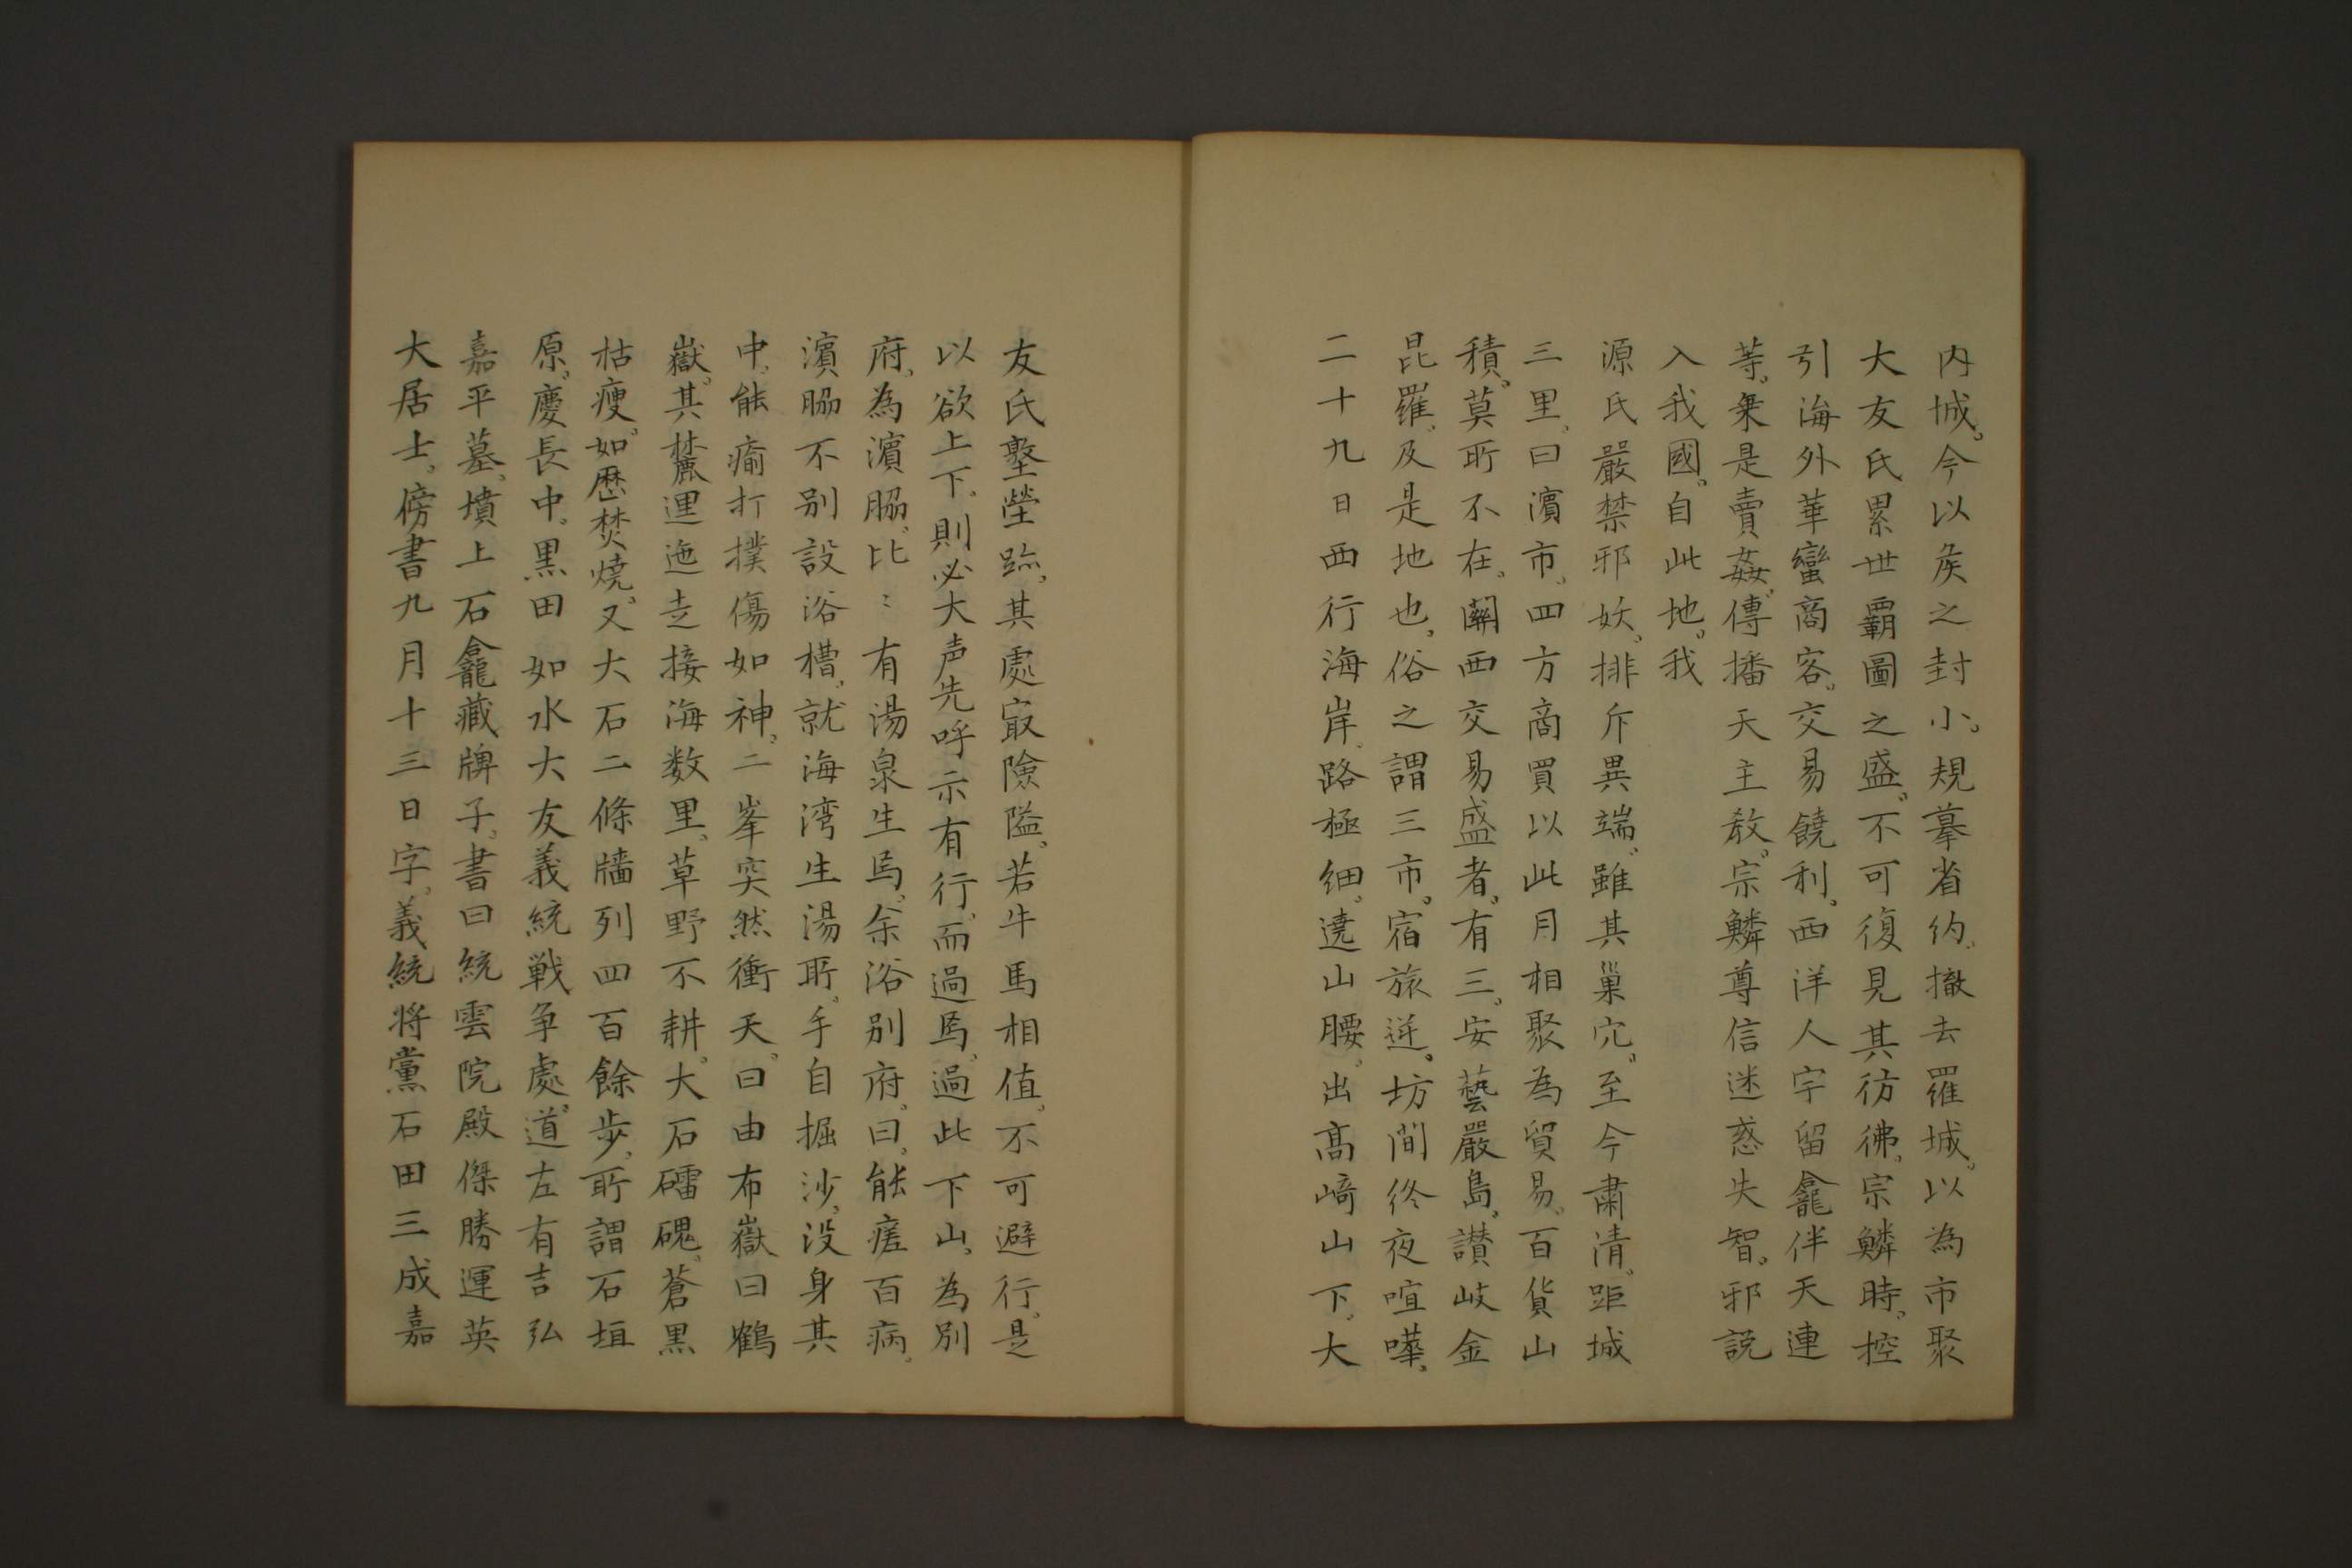 内城。今以矦之封小。規摹省約。撤去羅城。以為市聚
大友氏累世覇圖之盛。不可復見其彷彿。宗鱗時。控
引海外華蠻商客。交易饒利。西洋人宇留龕伴天連
等。乗是賣姦。傳播天主教。宗鱗尊信迷惑失智。邪説
入我國。自此地。我
源氏嚴禁邪妖。排斥異端。雖其巢穴。至今肅清。距城
三里。曰濵市。四方商買以此月相聚為貿易。百貨山
積。莫所不在。関西交易盛者。有三。安藝嚴島。讃岐金
昆羅。及是地也。俗之謂三市。宿旅逆。坊間終夜喧嘩。
二十九日西行海岸。路極細。遶山腰。出髙﨑山下。大
友氏壑塋跡。其處㝡險隘。若牛馬相值。不可避行。是
以欲上下。則必大声先呼示有行。而過焉。過此下山。為別
府。為濵脇。比〻有湯泉生焉。余浴別府。曰。能瘥百病。
濵脇不別設浴槽。就海湾生湯所。手自掘沙。没身其
中。能瘉打撲傷如神。二峯突然衝天。曰由布嶽曰鶴
嶽。其麓逦迤走接海数里。草野不耕。大石礌磈。蒼黒
枯瘦。如歴焚燒。又大石二條牆列四百餘歩。所謂石垣
原。慶長中。黒田如水大友義統戦争處。道左有吉弘
嘉平墓。墳上石龕藏牌子。書曰統雲院殿傑勝運英
大居士。傍書九月十三日字。義統将黨石田三成嘉